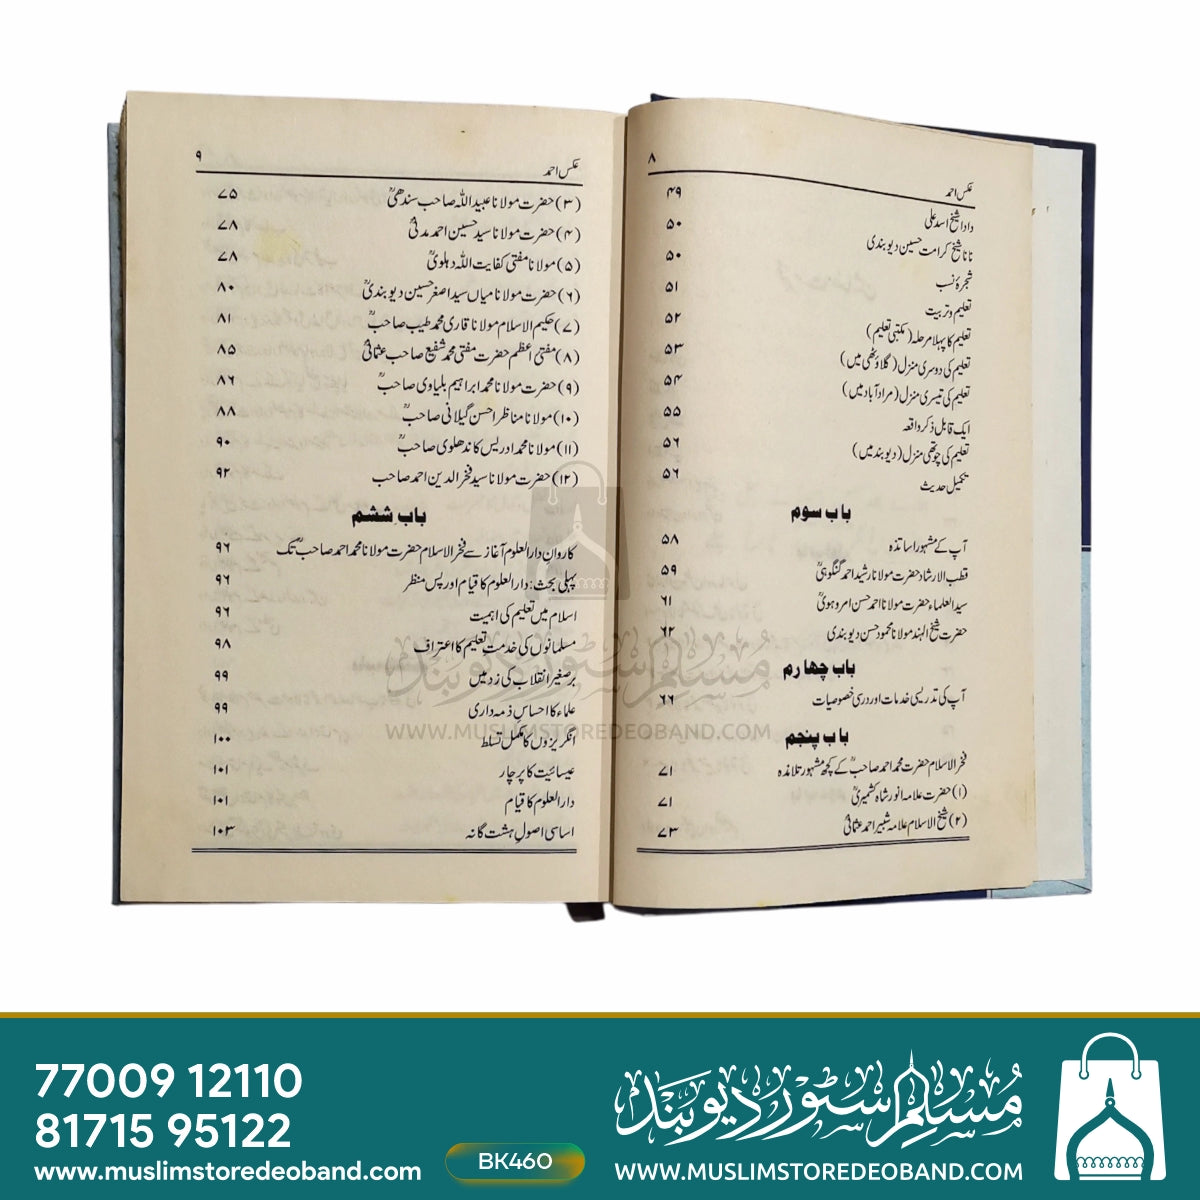 ۸
عکس احمد
دادا شیخ اسد علی ۴۹
نانا شیخ کرامت حسین دیوبندی ۵۰
شجرۂ نسب ۵۰
تعلیم و تربیت ۵۱
تعلیم کا پہلا مرحلہ (مکتبی تعلیم) ۵۲
تعلیم کی دوسری منزل (گلاوٹھی میں) ۵۳
تعلیم کی تیسری منزل (مرادآباد میں) ۵۴
ایک قابل ذکر واقعہ ۵۵
تعلیم کی چوتھی منزل (دیوبند میں) ۵۶
تکمیل حدیث ۵۶
باب سوم
آپ کے مشہور اساتذہ ۵۸
قطب الارشاد حضرت مولانا رشید احمد گنگوہیؒ ۵۹
سید العلماء حضرت مولانا احمد حسن امروہویؒ ۶۱
حضرت شیخ الہند مولانا محمود حسن دیوبندی ۶۲
باب چھارم
آپ کی تدریسی خدمات اور درسی خصوصیات ۶۶
باب پنجم
فخر الاسلام حضرت محمد احمد صاحبؒ کے کچھ مشہور تلامذہ ۷۱
(۱) حضرت علامہ انور شاہ کشمیریؒ ۷۱
(۲) شیخ الاسلام علامہ شبیر احمد عثمانیؒ ۷۳
عکس احمد
۹
(۳) حضرت مولانا عبید اللہ صاحب سندھیؒ ۷۵
(۴) حضرت مولانا سید حسین احمد مدنیؒ ۷۸
(۵) مولانا مفتی کفایت اللہ دہلویؒ ۷۸
(۶) حضرت مولانا میاں سید اصغر حسین دیوبندیؒ ۸۰
(۷) حکیم الاسلام مولانا قاری محمد طیب صاحبؒ ۸۱
(۸) مفتی اعظم حضرت مفتی محمد شفیع صاحب عثمانیؒ ۸۵
(۹) حضرت مولانا محمد ابراہیم بلیاوی صاحبؒ ۸۶
(۱۰) مولانا مناظر احسن گیلانی صاحبؒ ۸۸
(۱۱) مولانا محمد ادریس کاندھلوی صاحبؒ ۹۰
(۱۲) حضرت مولانا سید فخر الدین احمد صاحب ۹۲
باب ششم
کاروانِ دارالعلوم آغاز سے فخر الاسلام حضرت مولانا محمد احمد صاحبؒ تک ۹۶
پہلی بحث: دارالعلوم کا قیام اور پس منظر ۹۶
اسلام میں تعلیم کی اہمیت ۹۶
مسلمانوں کی خدمتِ تعلیم کا اعتراف ۹۸
برصغیر انقلاب کی زد میں ۹۹
علماء کا احساسِ ذمہ داری ۹۹
انگریزوں کا مکمل تسلط ۱۰۰
عیسائیت کا پرچار ۱۰۱
دارالعلوم کا قیام ۱۰۱
اساسی اصولِ ہشت گانہ ۱۰۳
مسلم سٹور دیوبند
WWW.MUSLIMSTOREDEOBAND.COM
77009 12110
81715 95122
www.muslimstoredeoband.com
BK460
مسلم سٹور دیوبند
WWW.MUSLIMSTOREDEOBAND.COM